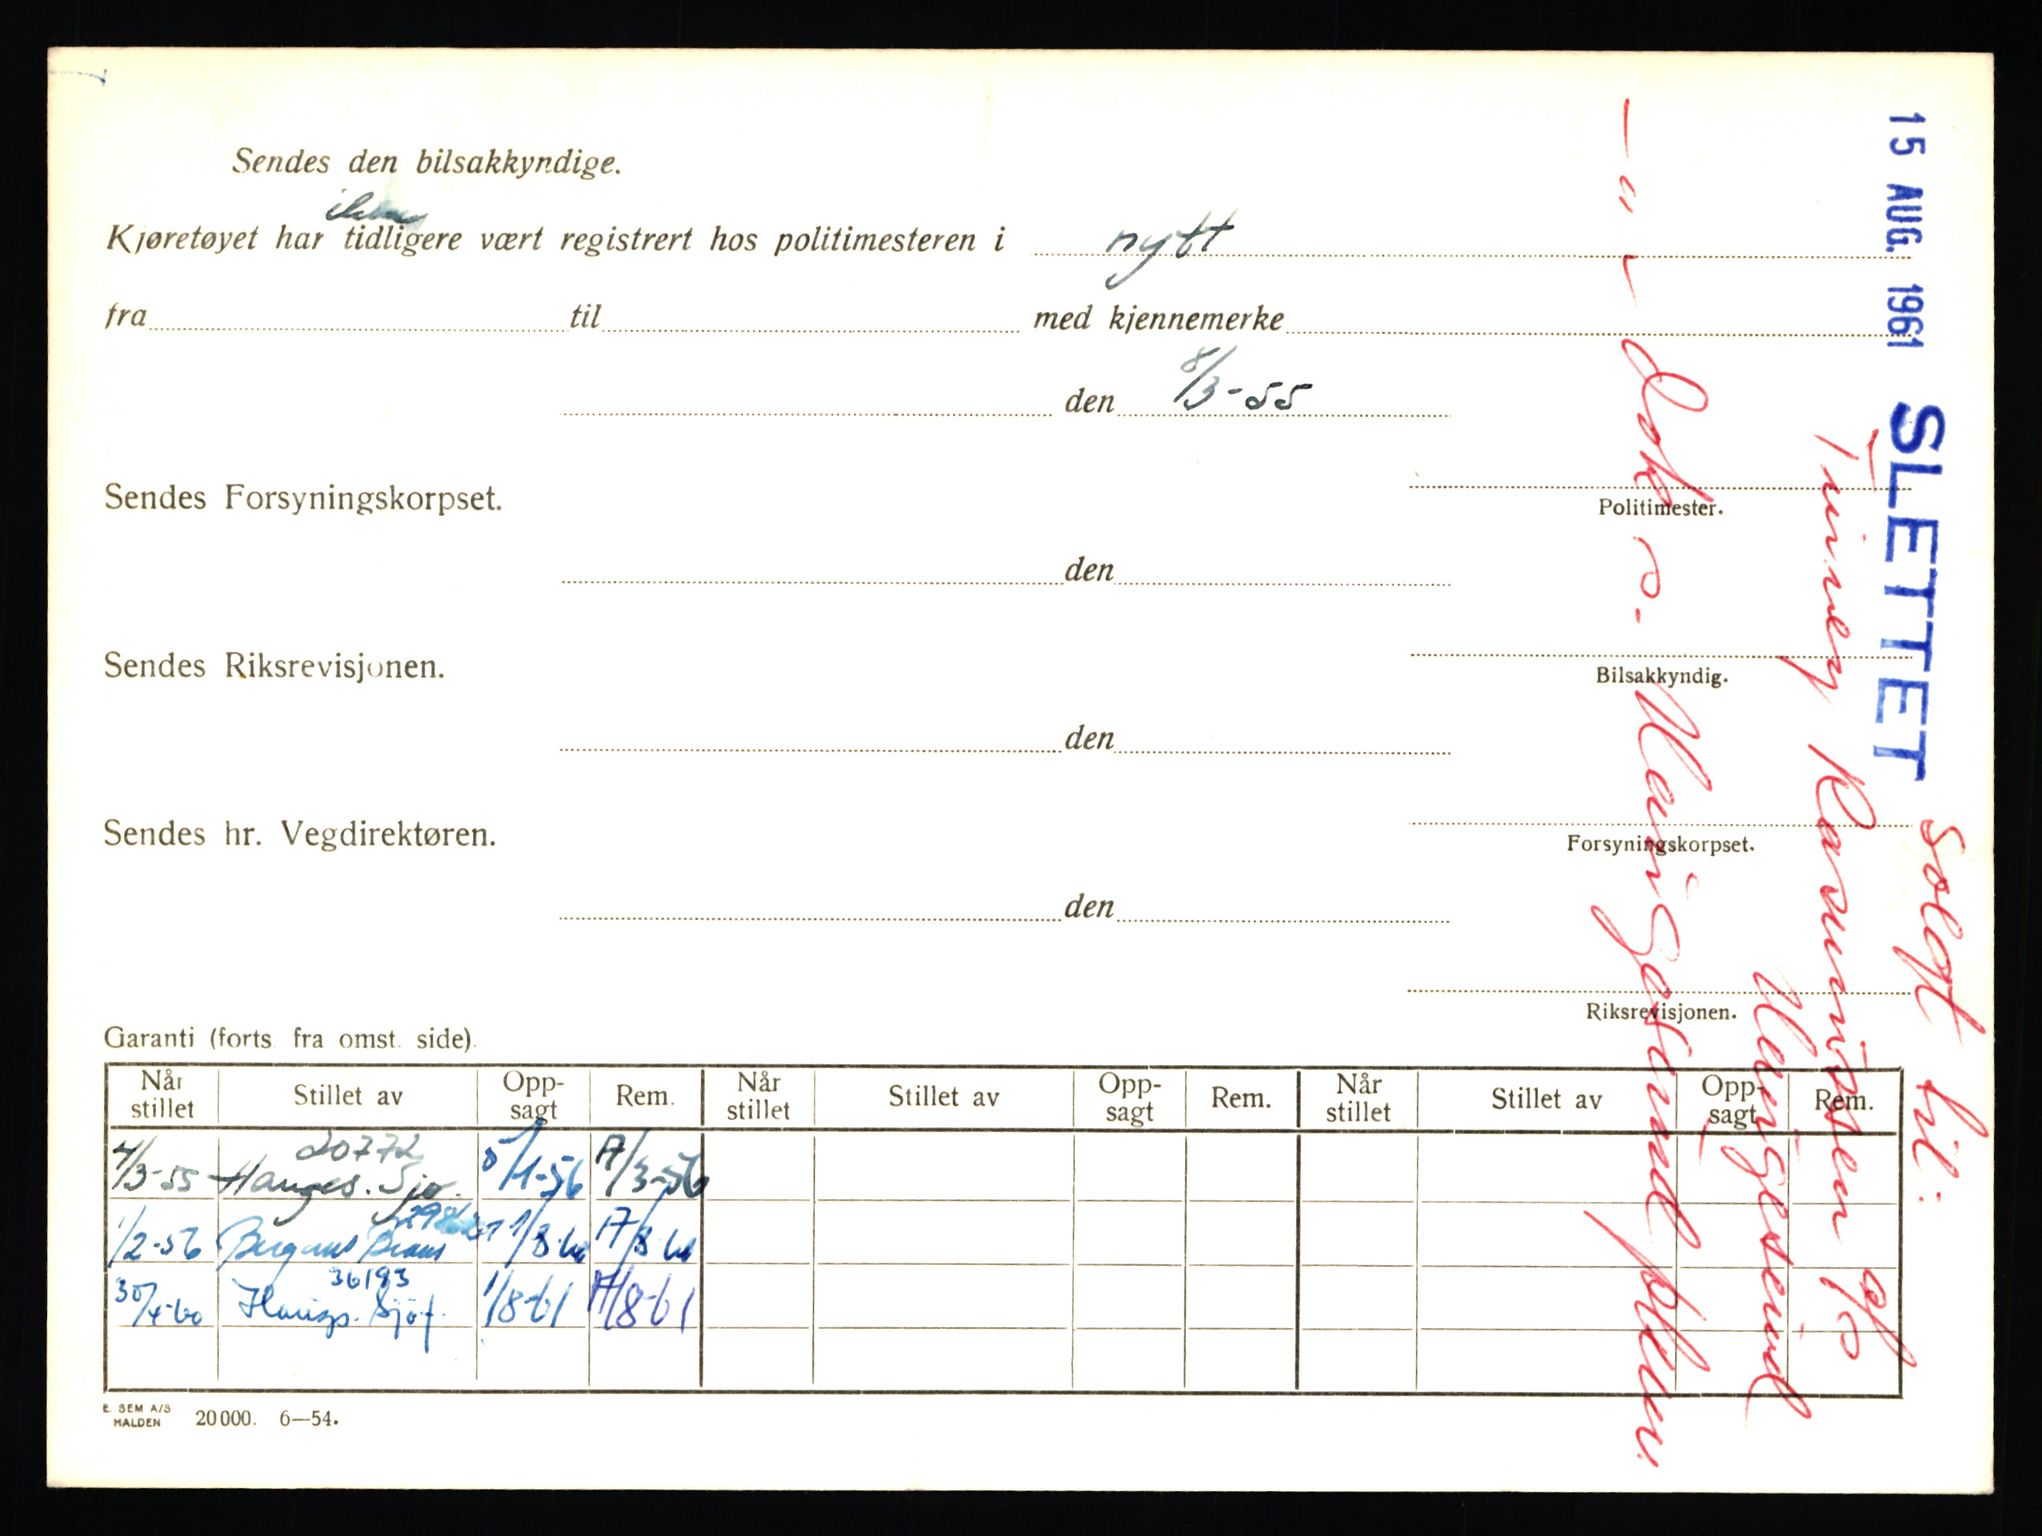 Sendes den bilsakkyndige.
Kjøretøyet har ikke tidligere vært registrert hos politimesteren i nytt
fra til med kjennemerke
den 8/3-55
Sendes Forsyningskorpset.
Politimester.
den
Sendes Riksrevisjonen.
Bilsakkyndig.
den
Sendes hr. Vegdirektøren.
Forsyningskorpset.
den
Riksrevisjonen.
Garanti (forts. fra omst. side).
Når stillet Stillet av Opp-sagt Rem. Når stillet Stillet av Opp-sagt Rem. Når stillet Stillet av Opp-sagt Rem.
20772
4/3-55 Hauges. Sjø. 5/1-56 A/3-56
1/2-56 Bergens Brann 1/8-60 A/8-60
36193
30/4-60 Haugs. Sjøf. 1/8-61 A/8-61
E. SEM A/S
HALDEN 20000. 6—54.
15 AUG. 1961
SLETTET
solgt til:
Rasmussen